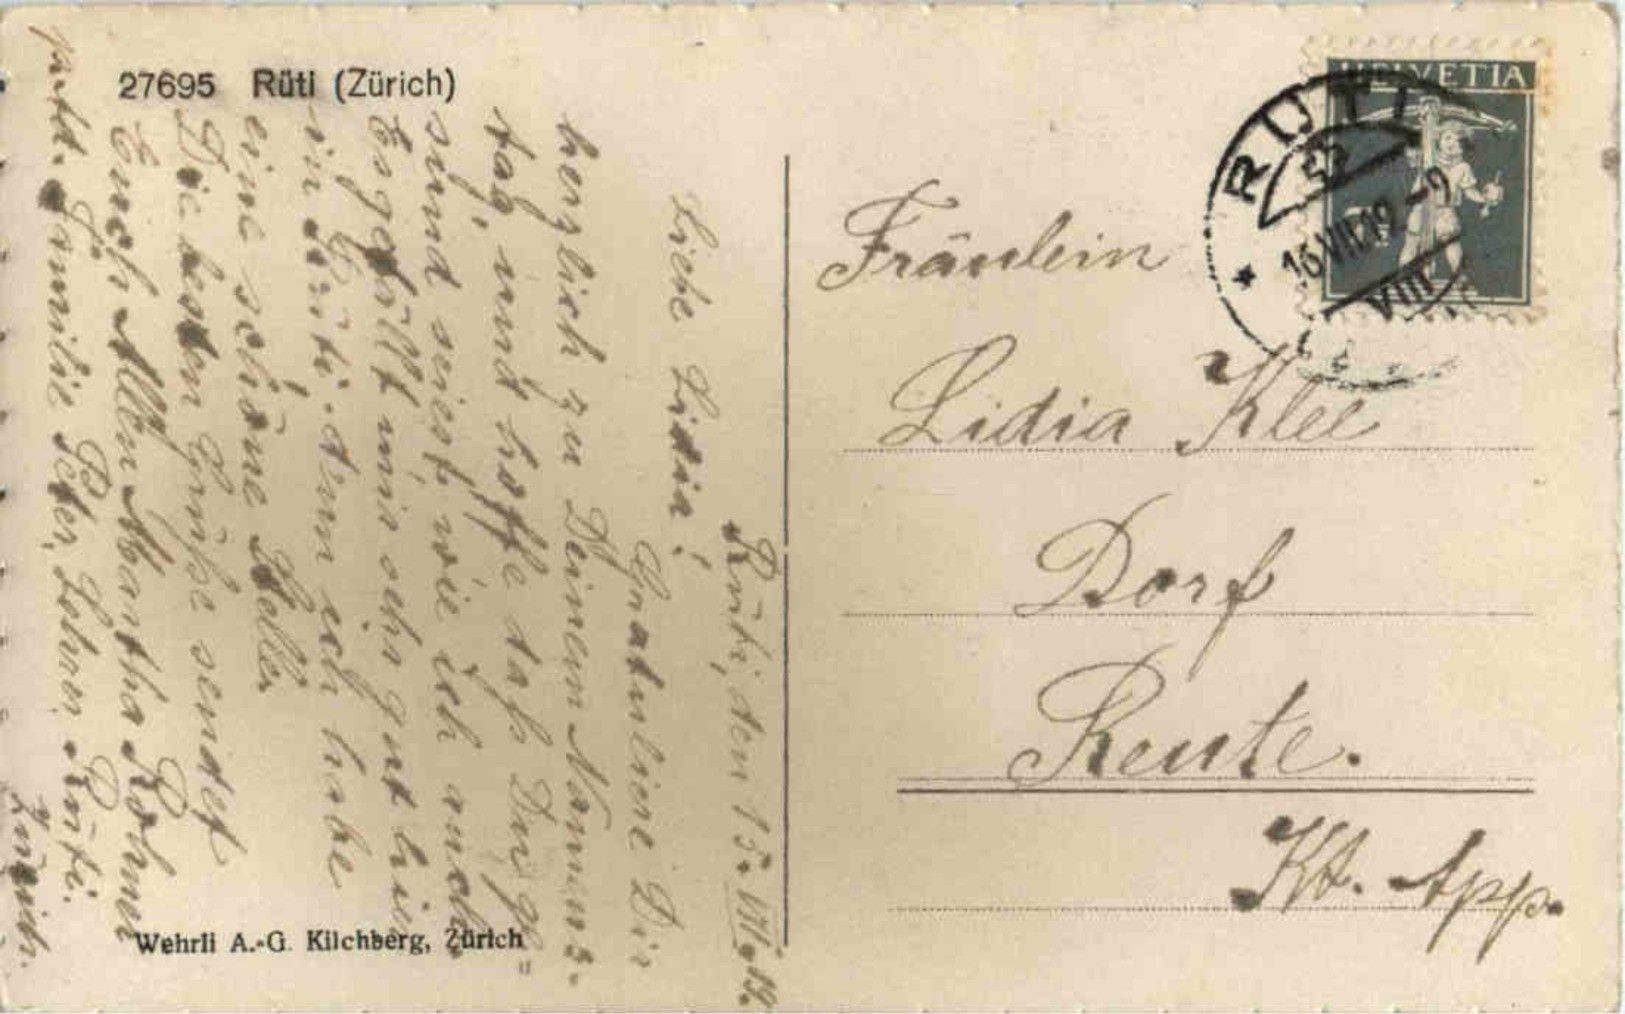 27695 Rüti (Zürich)
HELVETIA
RÜTI
16.VIII.19.-9
VIII
Fräulein
Lidia Klee
Dorf
Reute.
Kt. App.
Rüti, den 15. VIII. 19.
Liebe Lidia!
Gratuliere Dir
herzlich zu Deinem Namens-
tag und hoffe daß Du ge-
sund seiest, wie ich auch.
Es gefällt mir sehr gut hier
in Rüti. Nun ich habe
eine schöne Stelle.
Die besten Grüße sendet
Euch Allen Martha Rohner
Familie Rüti.
Zürich.
Wehrli A.-G. Kilchberg, Zürich